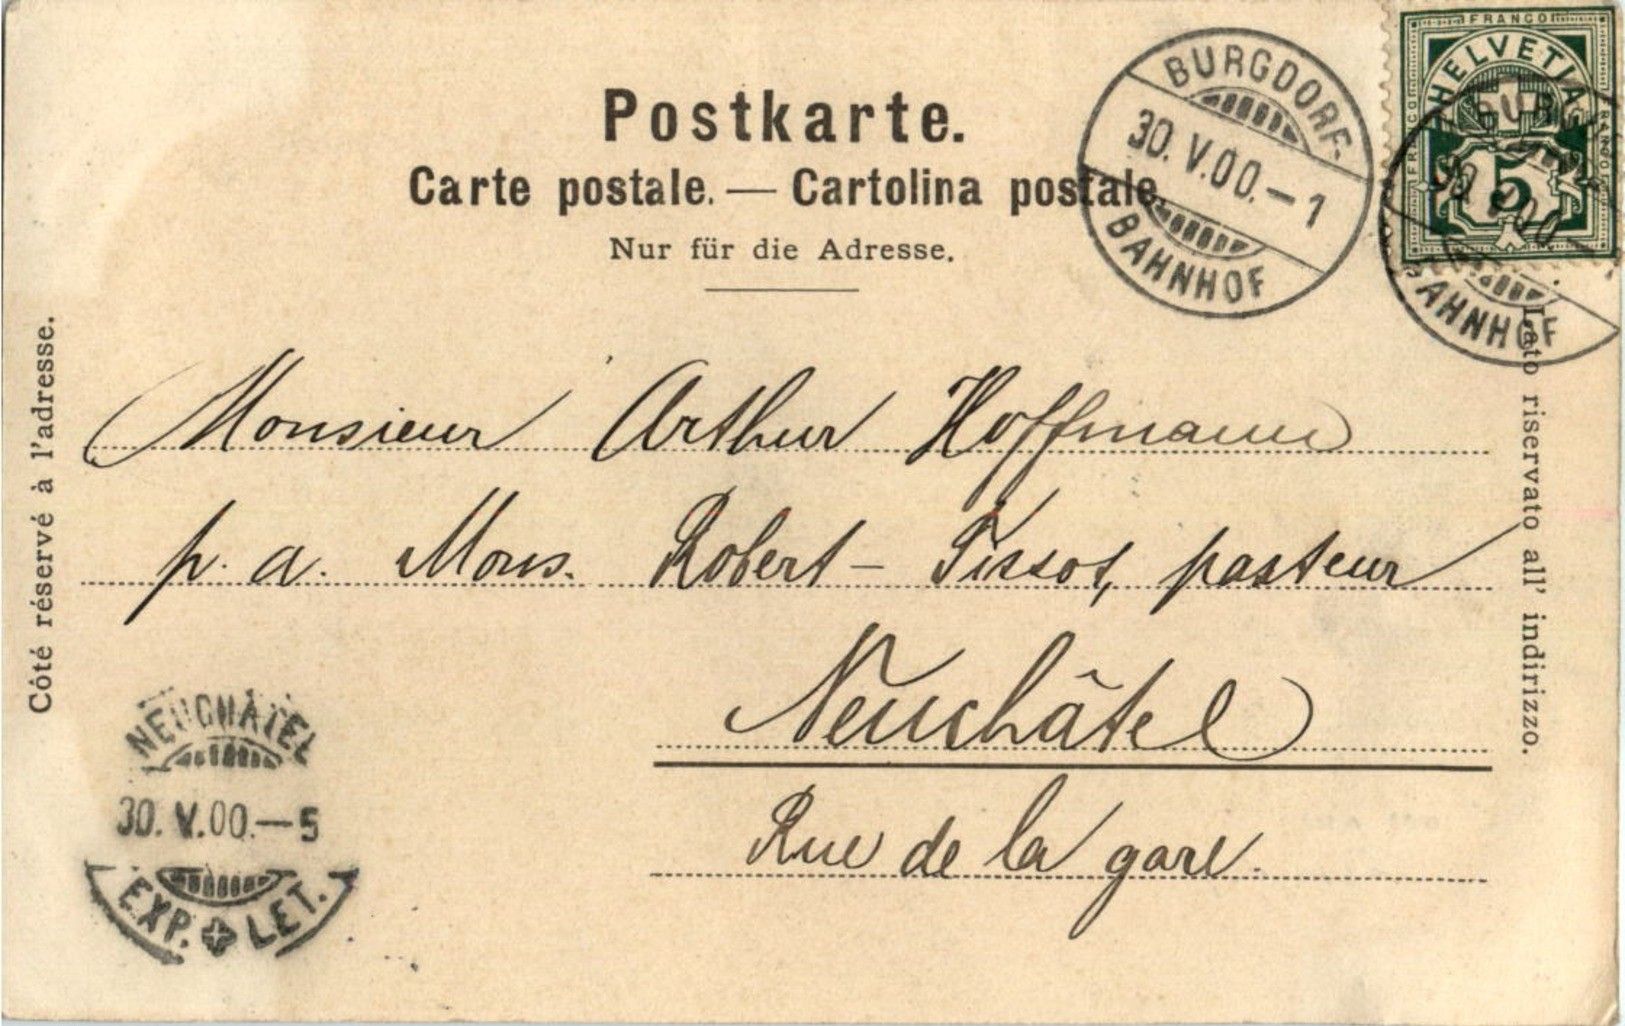 Postkarte.
Carte postale. — Cartolina postale.
Nur für die Adresse.
BURGDORF-
30.V.00.-1
BAHNHOF
FRANCO
HELVETIA
FRANCO
FRANCO
5
BAHNHOF
Côté réservé à l'adresse.
Lato riservato all' indirizzo.
Monsieur Arthur Hoffmann
p. a. Mons. Robert-Tissot, pasteur
Neuchâtel
Rue de la gare.
NEUCHÂTEL
30.V.00.-5
EXP. LET.